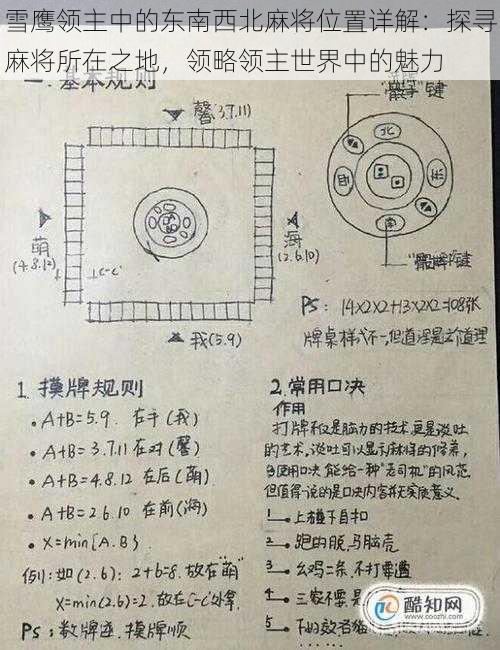 雪鹰领主中的东南西北麻将位置详解：探寻
麻将所在之地，领略领主世界中的魅力
一.基本规则
馨(3.7.11)
萌
(4.8.12)
海
(2.6.10)
我(5.9)
"骰子"键
北
南
PS: 14×2×2+13×2×2=108张
牌桌样式不一,但道理是这个道理
1. 摸牌规则
·A+B=5.9. 在手(我)
·A+B=3.7.11 在对(馨)
·A+B=4.8.12 在后(萌)
·A+B=2.6.10 在前(海)
·X=min{A.B}
例:如(2.6): 2+6=8. 放在"萌"
X=min(2.6)=2. 放在C-C处拿
PS: 数牌逆.摸牌顺
2. 常用口决
作用
打牌不仅是脑力的技术,更是谈吐
的艺术,谈吐可以显示麻将的修养,
使用口决能给一种"老司机"的风范
但值得说的是口决内容并无实质意义.
1. 上碰下自扣
2. 跑的脱,马脑壳
3. 幺鸡二条,不打要遭
4. 三家不要
5.
酷知网
www.coozhi.com